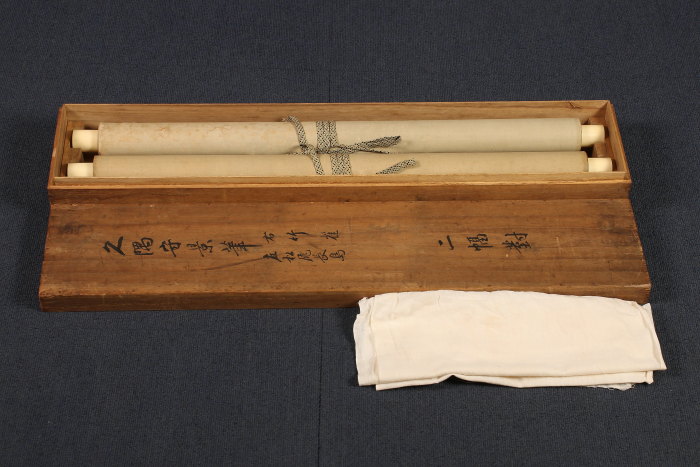 久隅守景筆
右竹雀
左松尾長鳥
二幅對